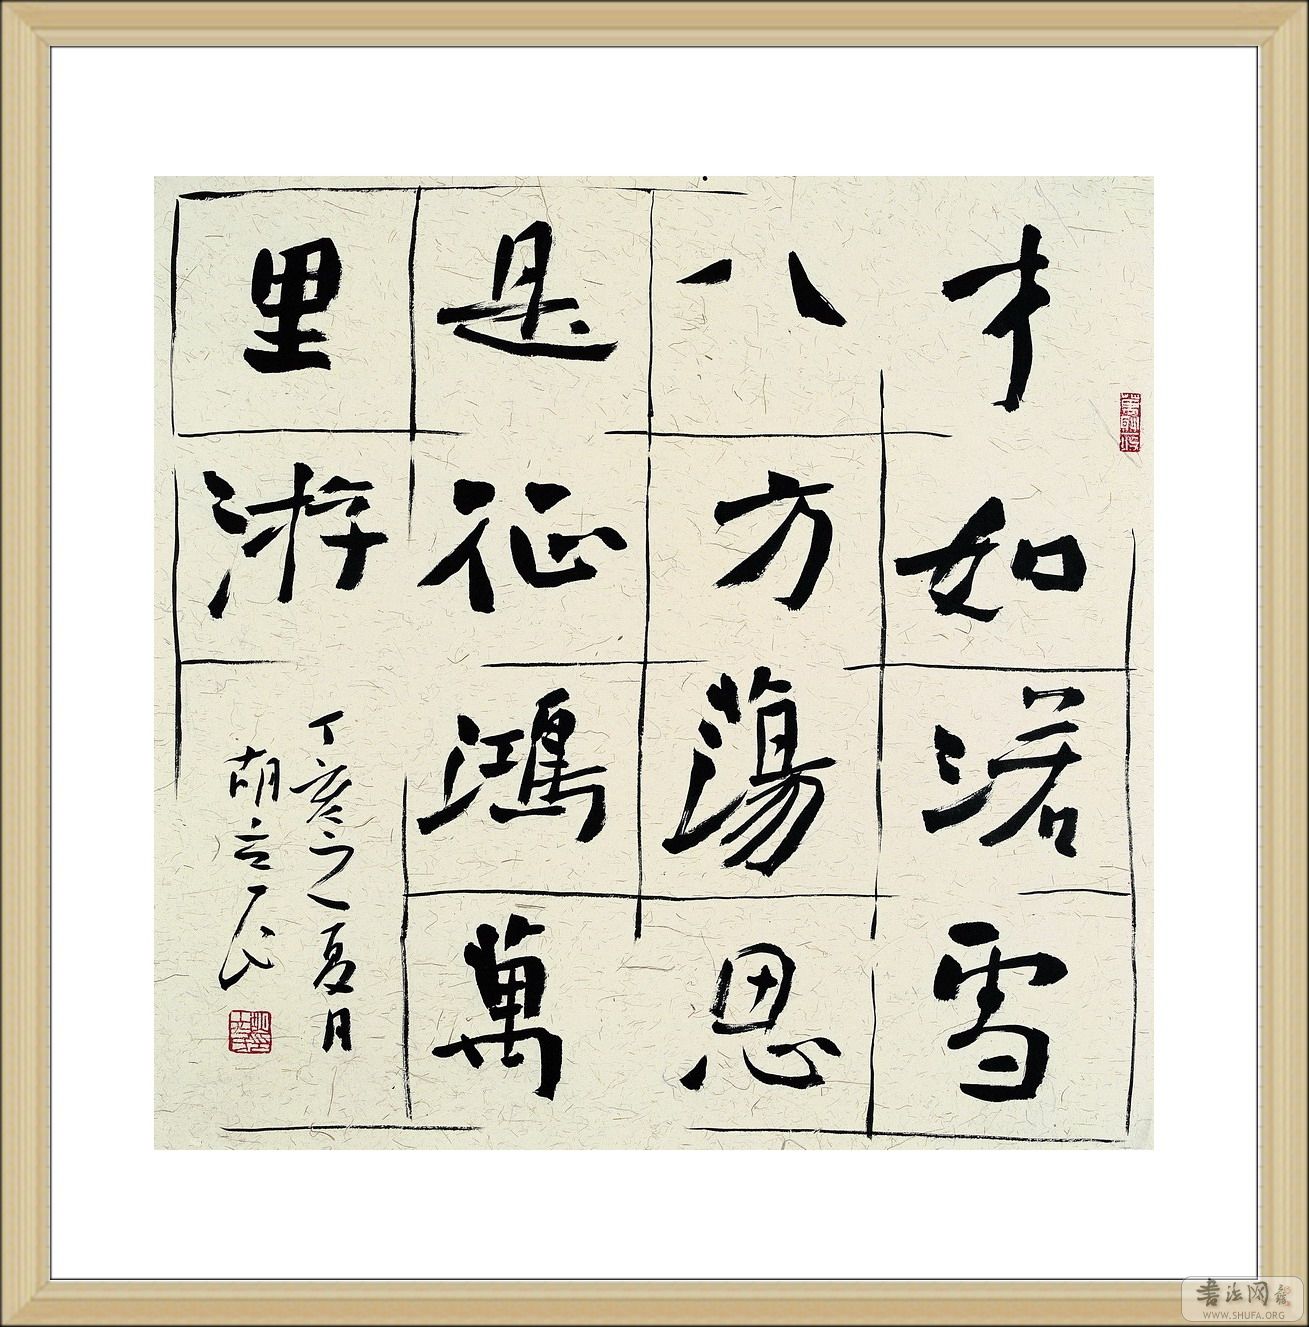 才如渃雪
八方蕩思
是征鴻萬
里游
丁亥之夏月
胡立民
書法网
WWW.SHUFA.ORG